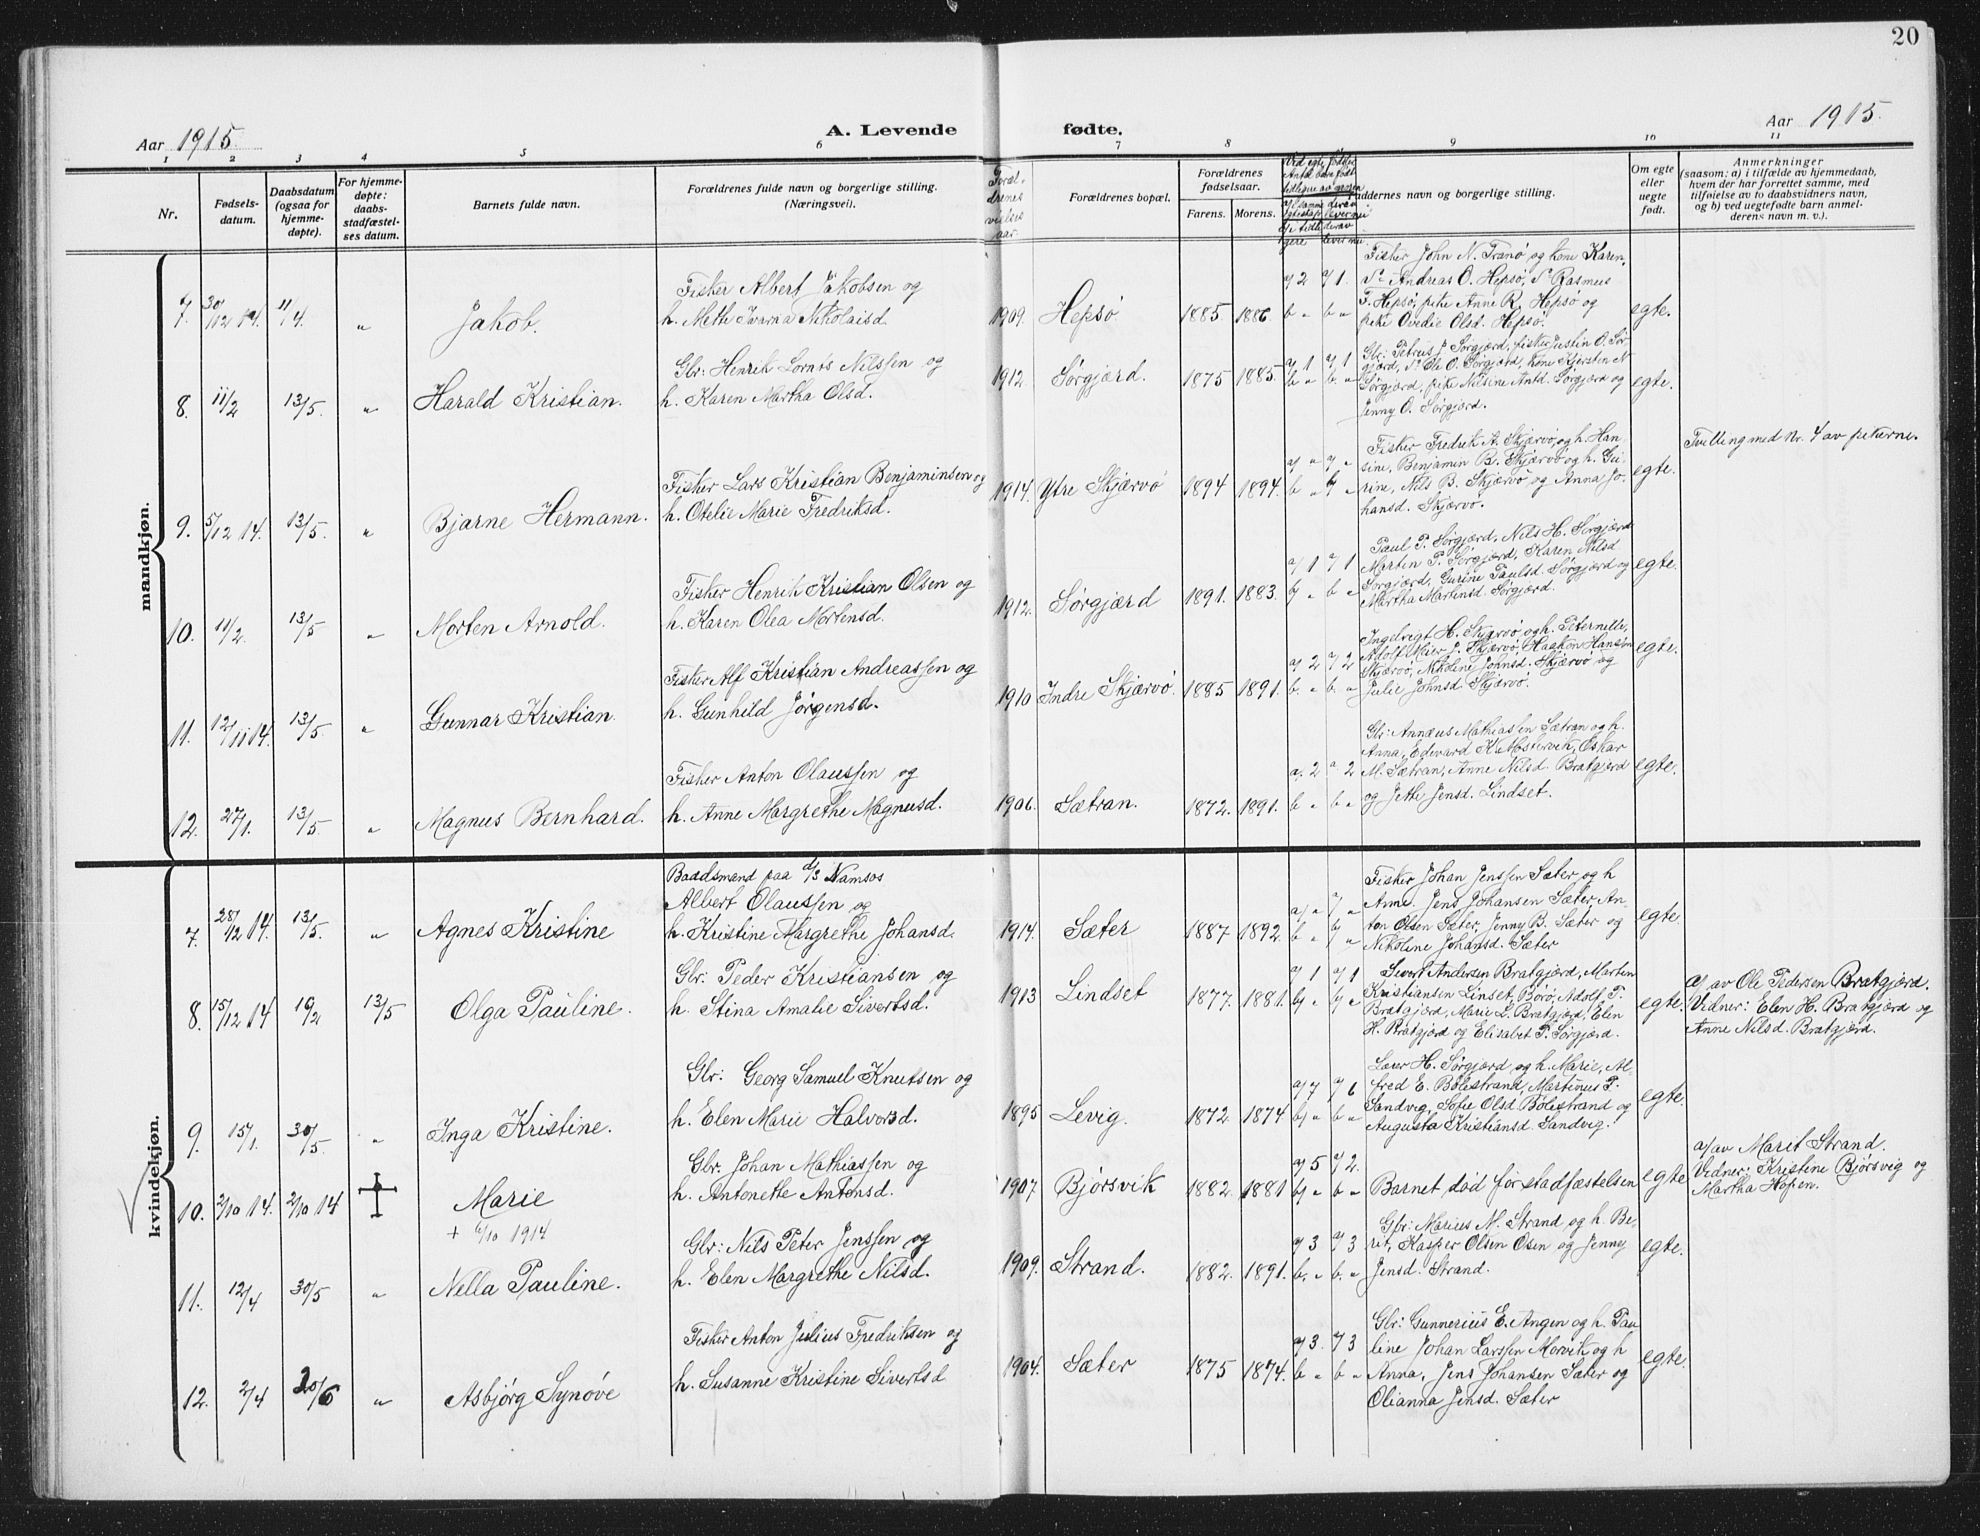 20
Aar 1915.
A. Levende
fødte.
Aar 1915.
1 2 3 4 5 6 7 8 9 10 11
Nr.
Fødsels-
datum.
Daabsdatum
(ogsaa for
hjemme-
døpte).
For hjemme-
døpte:
daabs-
stadfæstel-
ses datum.
Barnets fulde navn.
Forældrenes fulde navn og borgerlige stilling.
(Næringsvei).
Foræl-
drenes
vielses
aar.
Forældrenes bopæl.
Forældrenes
fødselsaar.
Farens. Morens.
Faddernes navn og borgerlige stilling.
Om egte
eller
uegte
født.
Anmerkninger
(saasom: a) i tilfælde av hjemmedaab,
hvem der har forrettet samme, med
tilføielse av to daabsvidners navn,
og b) ved uegtefødte barn anmel-
derens navn m. v.).
mandkjøn.
7. 30/12 14. 11/4. „ Jakob.
Fisker Albert Jakobsen og
h. Mette Ivarna Nikolaisd.
1909. Hepsø 1885 1886. a/ 2 a/ 1. b „ b „
Fisker John N. Tranø og kone Karen,
do Andreas O. Hepsø, do Rasmus
F. Hepsø, pike Anne R. Hepsø og
pike Ovedie Olsd. Hepsø.
egte.
8. 11/2 13/5. „ Harald Kristian.
Gbr: Henrik Lornts Nilssen og
h. Karen Martha Olsd.
1912. Sørgjærd. 1875 1885. a/ 1 a/ 1 b „ b „
Gbr: Petrus J. Sørgjærd, fisker Justin O. Sør-
gjærd, do Ole O. Sørgjærd, kone Kjersten N
Sørgjærd, pike Nilsine Antd. Sørgjærd og
Jenny O. Sørgjærd.
egte.
9. 5/12 14. 13/5. „ Bjarne Hermann.
Fisker Lars Kristian Benjaminsen og
h. Otelie Marie Fredriksd.
1914. Ytre Skjærvø 1894 1894. a/ „ a/ „ b „ b/ „
Fisker Fredrik A. Skjærvø, og h. Han-
sine, Benjamin B. Skjærvø og h. Gu-
rine, Nils B. Skjærvø og Anna Jo-
hansd. Skjærvø.
egte.
Tvilling med Nr. 4 av pikerne.
10. 11/2. 13/5 „ Morten Arnold.
Fisker Henrik Kristian Olsen og
h. Karen Olea Mortensd.
1912. Sørgjærd 1891. 1883. a/ 1 a/ 1 b/ „ b „
Paul P. Sørgjærd, Nils H. Sørgjærd
Martin P. Sørgjærd, Karen Nilsd
Sørgjærd, Gurine Paulsd. Sørgjærd og
Martha Martinsd. Sørgjærd.
egte.
11. 12/11 14. 13/5. „ Gunnar Kristian.
Fisker Alf Kristian Andreassen og
h. Gunhild Jørgensd.
1910 Indre Skjærvø. 1885 1891. a/ 2 a/ 2 b. „ b. „
Ingebrigt H. Skjærvø og h. Peternelle,
Adolf Meier J. Skjærvø, Haakon Hansen
Skjærvø, Nikoline Johnsd. Skjærvø og
Julie Johnsd Skjærvø.
egte.
12. 27/1. 13/5 „ Magnus Bernhard.
Fisker Anton Olaussen og
h. Anne Margrethe Magnusd.
1906. Sætran. 1872. 1891. a. 2 a 2 b „ b „
Gbr: Annæus Mathiassen Sætran og h.
Anna, Edevard K. Mostervik, Oskar
M. Sætran, Anne Nilsd. Bratgjærd
og Jette Jensd. Lindset.
egte.
kvindekjøn.
7. 28/12 14. 13/5. „ Agnes Kristine
Baadsmand paa d/s Namsos
Albert Olaussen og
h. Kristine Margrethe Johansd.
1914. Sæter 1887 1892. a/ „ a/ „ b „ b/ „
Fisker Johan Jenssen Sæter og h
Anne. Jens Johansen Sæter, An-
ton Olsen Sæter, Jenny B. Sæter og
Nikoline Johansd. Sæter
egte.
8. 15/12 14 19/2 13/5 Olga Pauline.
Gbr: Peder Kristiansen og
h. Stina Amalie Sivertsd.
1913 Lindset 1877. 1881. a/ 1 a/ 1 b/ „ b/ „
Sivert Andersen Bratgjærd, Marten
Kristiansen Linset, Børø, Adolf P.
Bratgjærd, Marie L. Bratgjærd, Elen
H. Bratgjærd og Elisabet P. Sørgjærd.
egte.
a/ av Ole Pedersen Bratgjærd.
Vidner: Elen H. Bratgjærd og
Anne Nilsd. Bratgjærd.
9. 15/1. 30/5. „ Inga Kristine.
Gbr: Georg Samuel Knutsen og
h. Elen Marie Halvorsd.
1895 Levig. 1872 1874 a/ 7 a/ 6 b/ „ b „
Laur H. Sørgjærd og h. Marie, Al-
fred E. Bølestrand, Martinus P.
Sandvig, Sofie Olsd. Bølestrand og
Augusta Kristiansd. Sandvig.
egte.
10. 2/10 14. 2/10 14 ✝ Marie
+ 6/10 1914
Gbr. Johan Mathiassen og
h. Antonette Antonsd.
1907. Bjørsvik 1882. 1881 a/ 5 a/ 2. b/ „ b „
Barnet død før stadfæstelsen
egte
a/ av Marit Strand.
Vidner: Kristine Bjørsvig og
Martha Hopen.
11. 12/4 30/5 „ Nella Pauline.
Gbr: Nils Peter Jenssen og
h. Elen Margrethe Nilsd.
1909. Strand. 1882. 1891. a/ 3 a/ 3 b. „ b. „
Gbr: Marius M. Strand og h. Be-
rit, Kasper Olsen Osen og Jenny
Jensd. Strand.
egte.
12. 2/4 20/6 „ Asbjørg Synøve
Fisker Anton Julius Fredriksen og
h. Susanne Kristine Sivertsd
1904. Sæter 1875 1874. a/ 3. a/ 3 b „ b „
Gbr: Gunnerius E. Angen og h. Pau
line Johan Larssen Morvik og h
Anna, Jens Johansen Sæter og
Olianna Jensd. Sæter
egte.